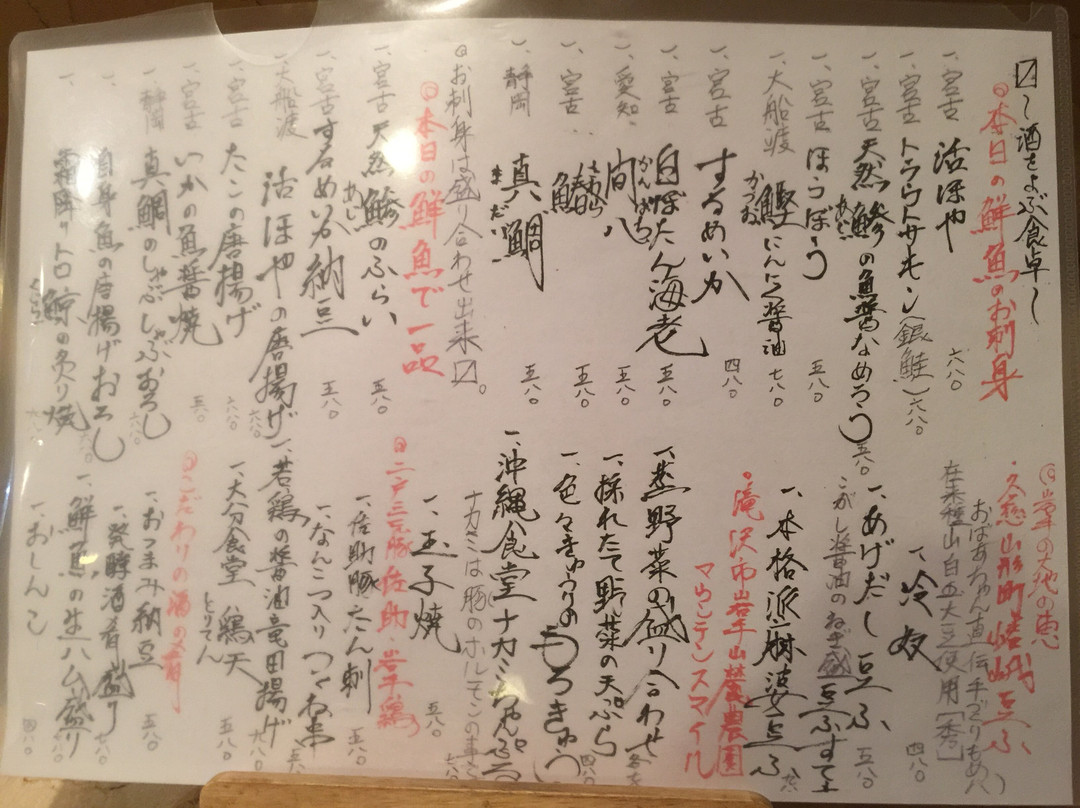 〼〜酒をよぶ食卓〜
◎本日の鮮魚のお刺身
一、宮古 活ほや 六八〇
一、宮古 トラウトサーモン(銀鮭) 六八〇
一、宮古 天然鯵の魚醤なめろう 五八〇
一、宮古 ほうぼう 五八〇
一、大船渡 鰹にんにく醤油 七八〇
一、宮古 するめいか 四八〇
一、宮古 白ぼたん海老 五八〇
一、愛知 間八 五八〇
一、宮古 鰆 五八〇
一、静岡 真鯛 五八〇
◎お刺身は盛り合わせ出来〼。
◎本日の鮮魚で一品
一、宮古 天然鯵のふらい 五八〇
一、宮古 するめいか納豆 五八〇
一、大船渡 活ほやの唐揚げ 六八〇
一、宮古 たこの唐揚げ 六八〇
一、宮古 いかの魚醤焼
一、静岡 真鯛のしゃぶしゃぶおろし 六八〇
一、白身魚の唐揚げおろし
一、霜降りトロ鯨の炙り焼
◎岩手の大地の恵
久慈山形町 豆ふ
おばあちゃん直伝手づくりもめん
在来種山白玉大豆使用
一、冷奴 四八〇
一、あげだし豆ふ 五八〇
こがし醤油のねぎ盛豆ふすてーき
一、本格派麻婆豆ふ
◎滝沢市岩手山麓農園
マウンテンスマイル
一、蒸野菜の盛り合わせ
一、採れたて野菜の天ぷら
一、色々きゅうりのもろきゅう 四八〇
一、沖縄食堂ナカミちゃんぷるー
ナカミは豚のホルモンの事
一、玉子焼 五八〇
◎二戸三元豚 佐助・岩手鶏
一、佐助豚たん刺 五八〇
一、なんこつ入りつくね串
一、若鶏の醤油竜田揚げ
一、大分食堂 鶏天 五八〇
◎こだわりの酒の肴
一、おつまみ納豆 五八〇
一、発酵酒肴盛り
一、鮮馬の生ハム盛り
一、おしんこ 四八〇